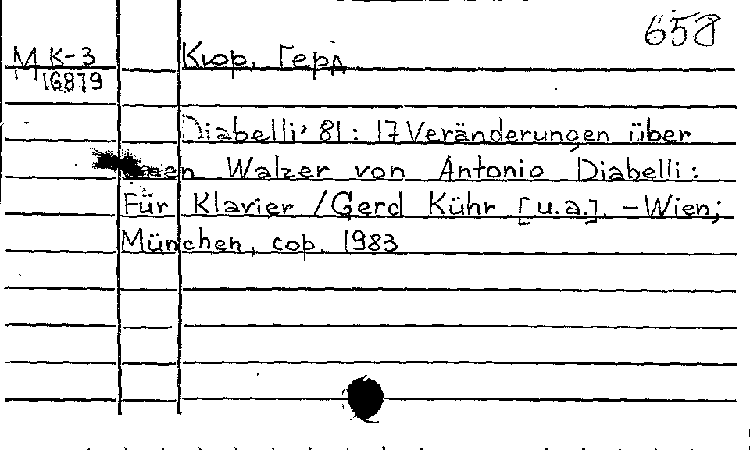 658
М К-3 Кюр, Герд
16879
Diabelli' 81: 17 Veränderungen über
Walzer von Antonio Diabelli:
Für Klavier / Gerd Kühr [u.a.]. - Wien;
München, cop. 1983